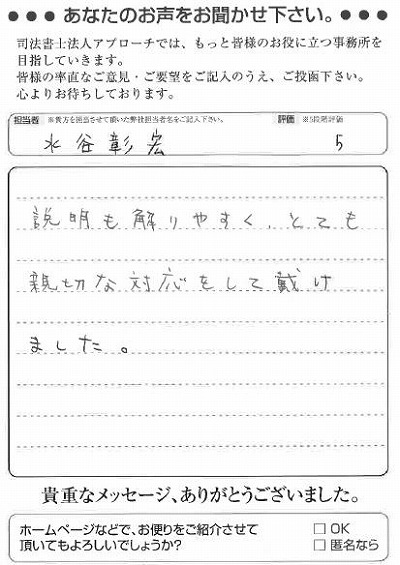 ●●●あなたのお声をお聞かせ下さい。●●●
司法書士法人アプローチでは、もっと皆様のお役に立つ事務所を
目指していきます。
皆様の率直なご意見・ご要望をご記入のうえ、ご投函下さい。
心よりお待ちしております。
担当者 ※貴方を担当させて頂いた弊社担当者名をご記入下さい。 評価 ※5段階評価
水谷彰宏 5
説明も解りやすく、とても
親切な対応をして戴け
ました。
貴重なメッセージ、ありがとうございました。
ホームページなどで、お便りをご紹介させて □ OK
頂いてもよろしいでしょうか? □ 匿名なら